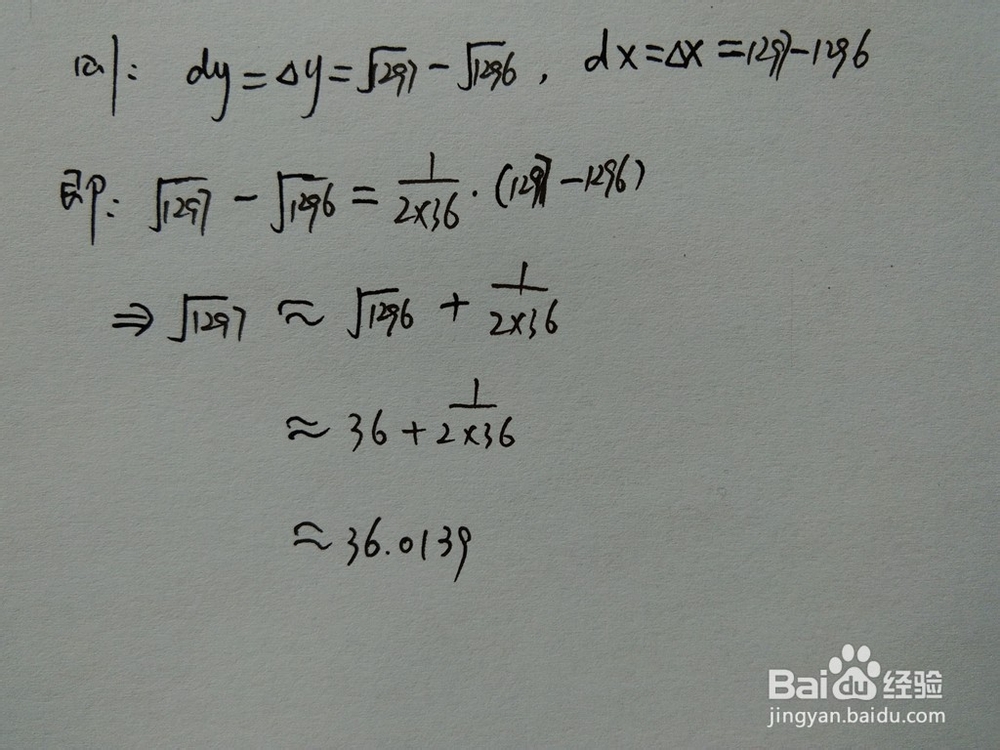 则: dy=Δy=√1297-√1296, dx=Δx=1297-1296
即: √1297-√1296=1/(2×36)·(1297-1296)
⇒√1297≈√1296+1/(2×36)
≈36+1/(2×36)
≈36.0139
Baidu经验
jingyan.baidu.com